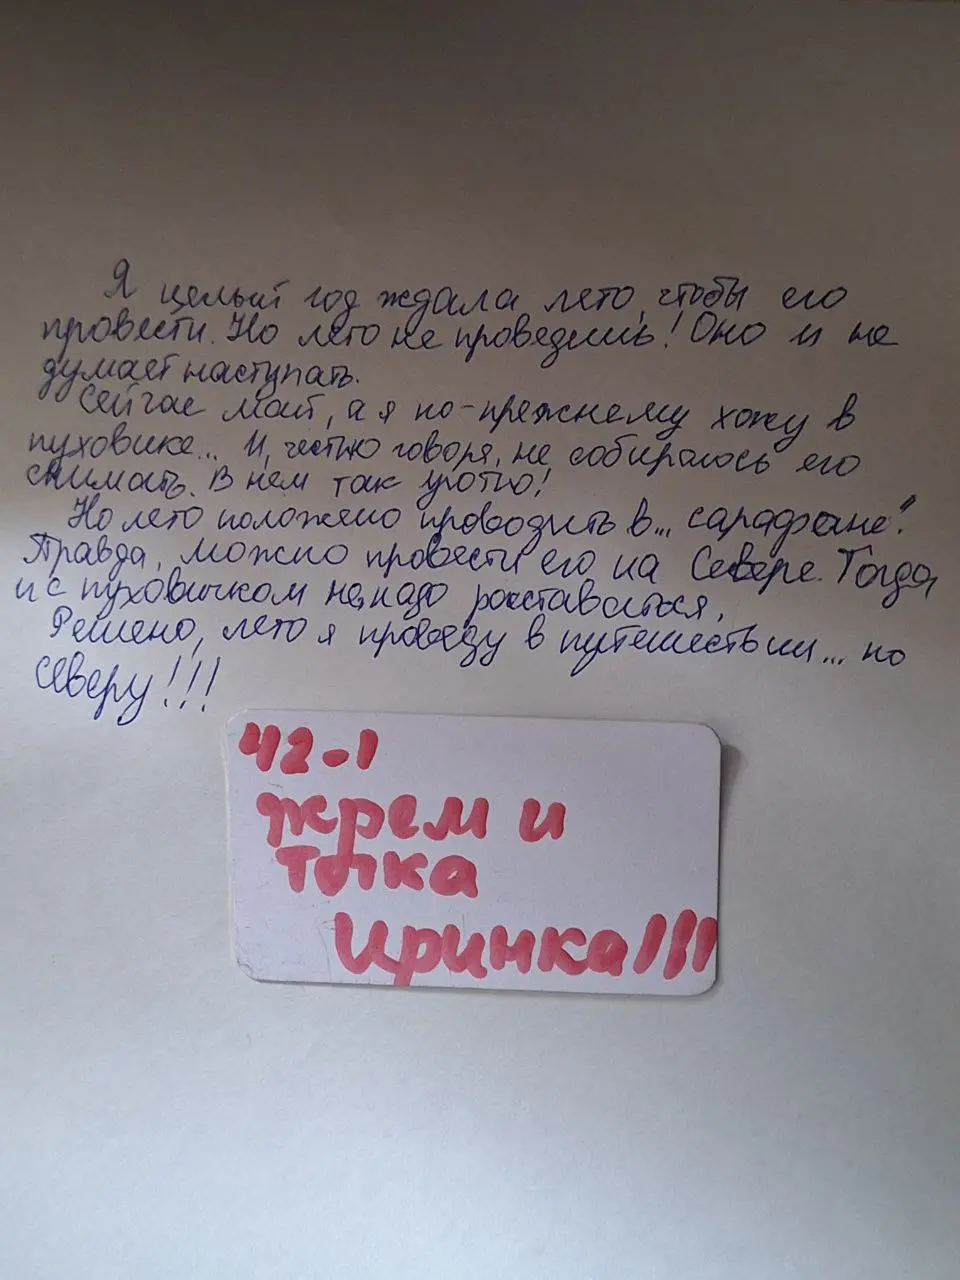 Я целый год ждала лето, чтобы его
провести. Но лето не проведёшь! Оно и не
думает наступать.
Сейчас май, а я по-прежнему хожу в
пуховике... И, честно говоря, не собираюсь его
снимать. В нем так уютно!
Но лето положено проводить в... сарафане!
Правда, можно провести его на Севере. Тогда
и с пуховичком не надо расставаться.
Решено, лето я проведу в путешествии... по
северу!!!
42-1
жрем и
толка
Иринка!!!